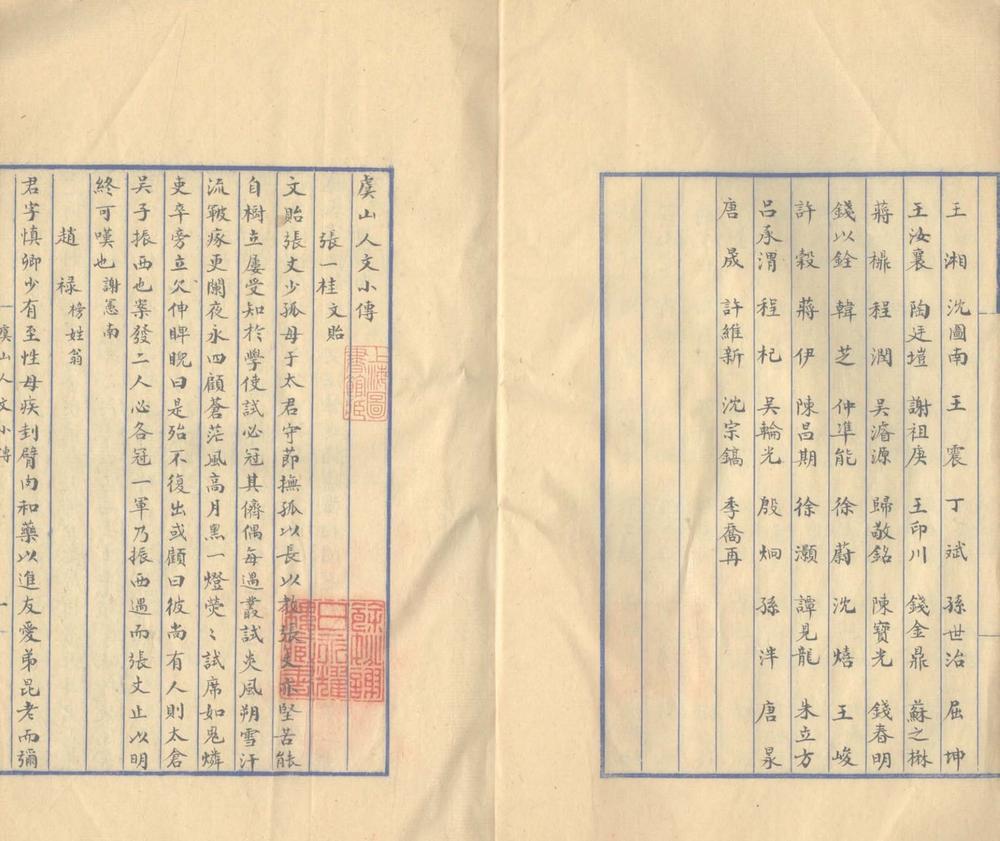 王湘 沈圖南 王震 丁斌 孫世治 屈坤
王汝襄 陶廷塏 謝祖庚 王印川 錢金鼎 蘇之楙
蔣櫆 程潤 吳濬源 歸敬銘 陳寶光 錢春明
錢以銓 韓芝 仲準能 徐蔚 沈熺 王峻
許穀 蔣伊 陳昌期 徐灝 譚見龍 朱立方
呂承渭 程杞 吳輪光 殷炯 孫泮 唐杲
唐晟 許維新 沈宗鎬 季喬再
虞山人文小傳
張一桂文貽
文貽張丈少孤母于太君守節撫孤以長以教張丈亦堅苦能
自樹立屢受知於學使試必冠其儕偶每遇叢試炎風朔雪汗
流皸瘃更闌夜永四顧蒼茫風高月黑一燈熒〻試席如鬼燐
吏卒旁立欠伸睥睨曰是殆不復出或顧曰彼尚有人則太倉
吴子振西也案發二人必各冠一軍乃振西遇而張丈止以明
終可嘆也謝憲南
趙祿榜姓翁
君字慎卿少有至性母疾刲臂肉和藥以進友愛弟昆老而彌
虞山人文小傳
一
上海圖書館藏